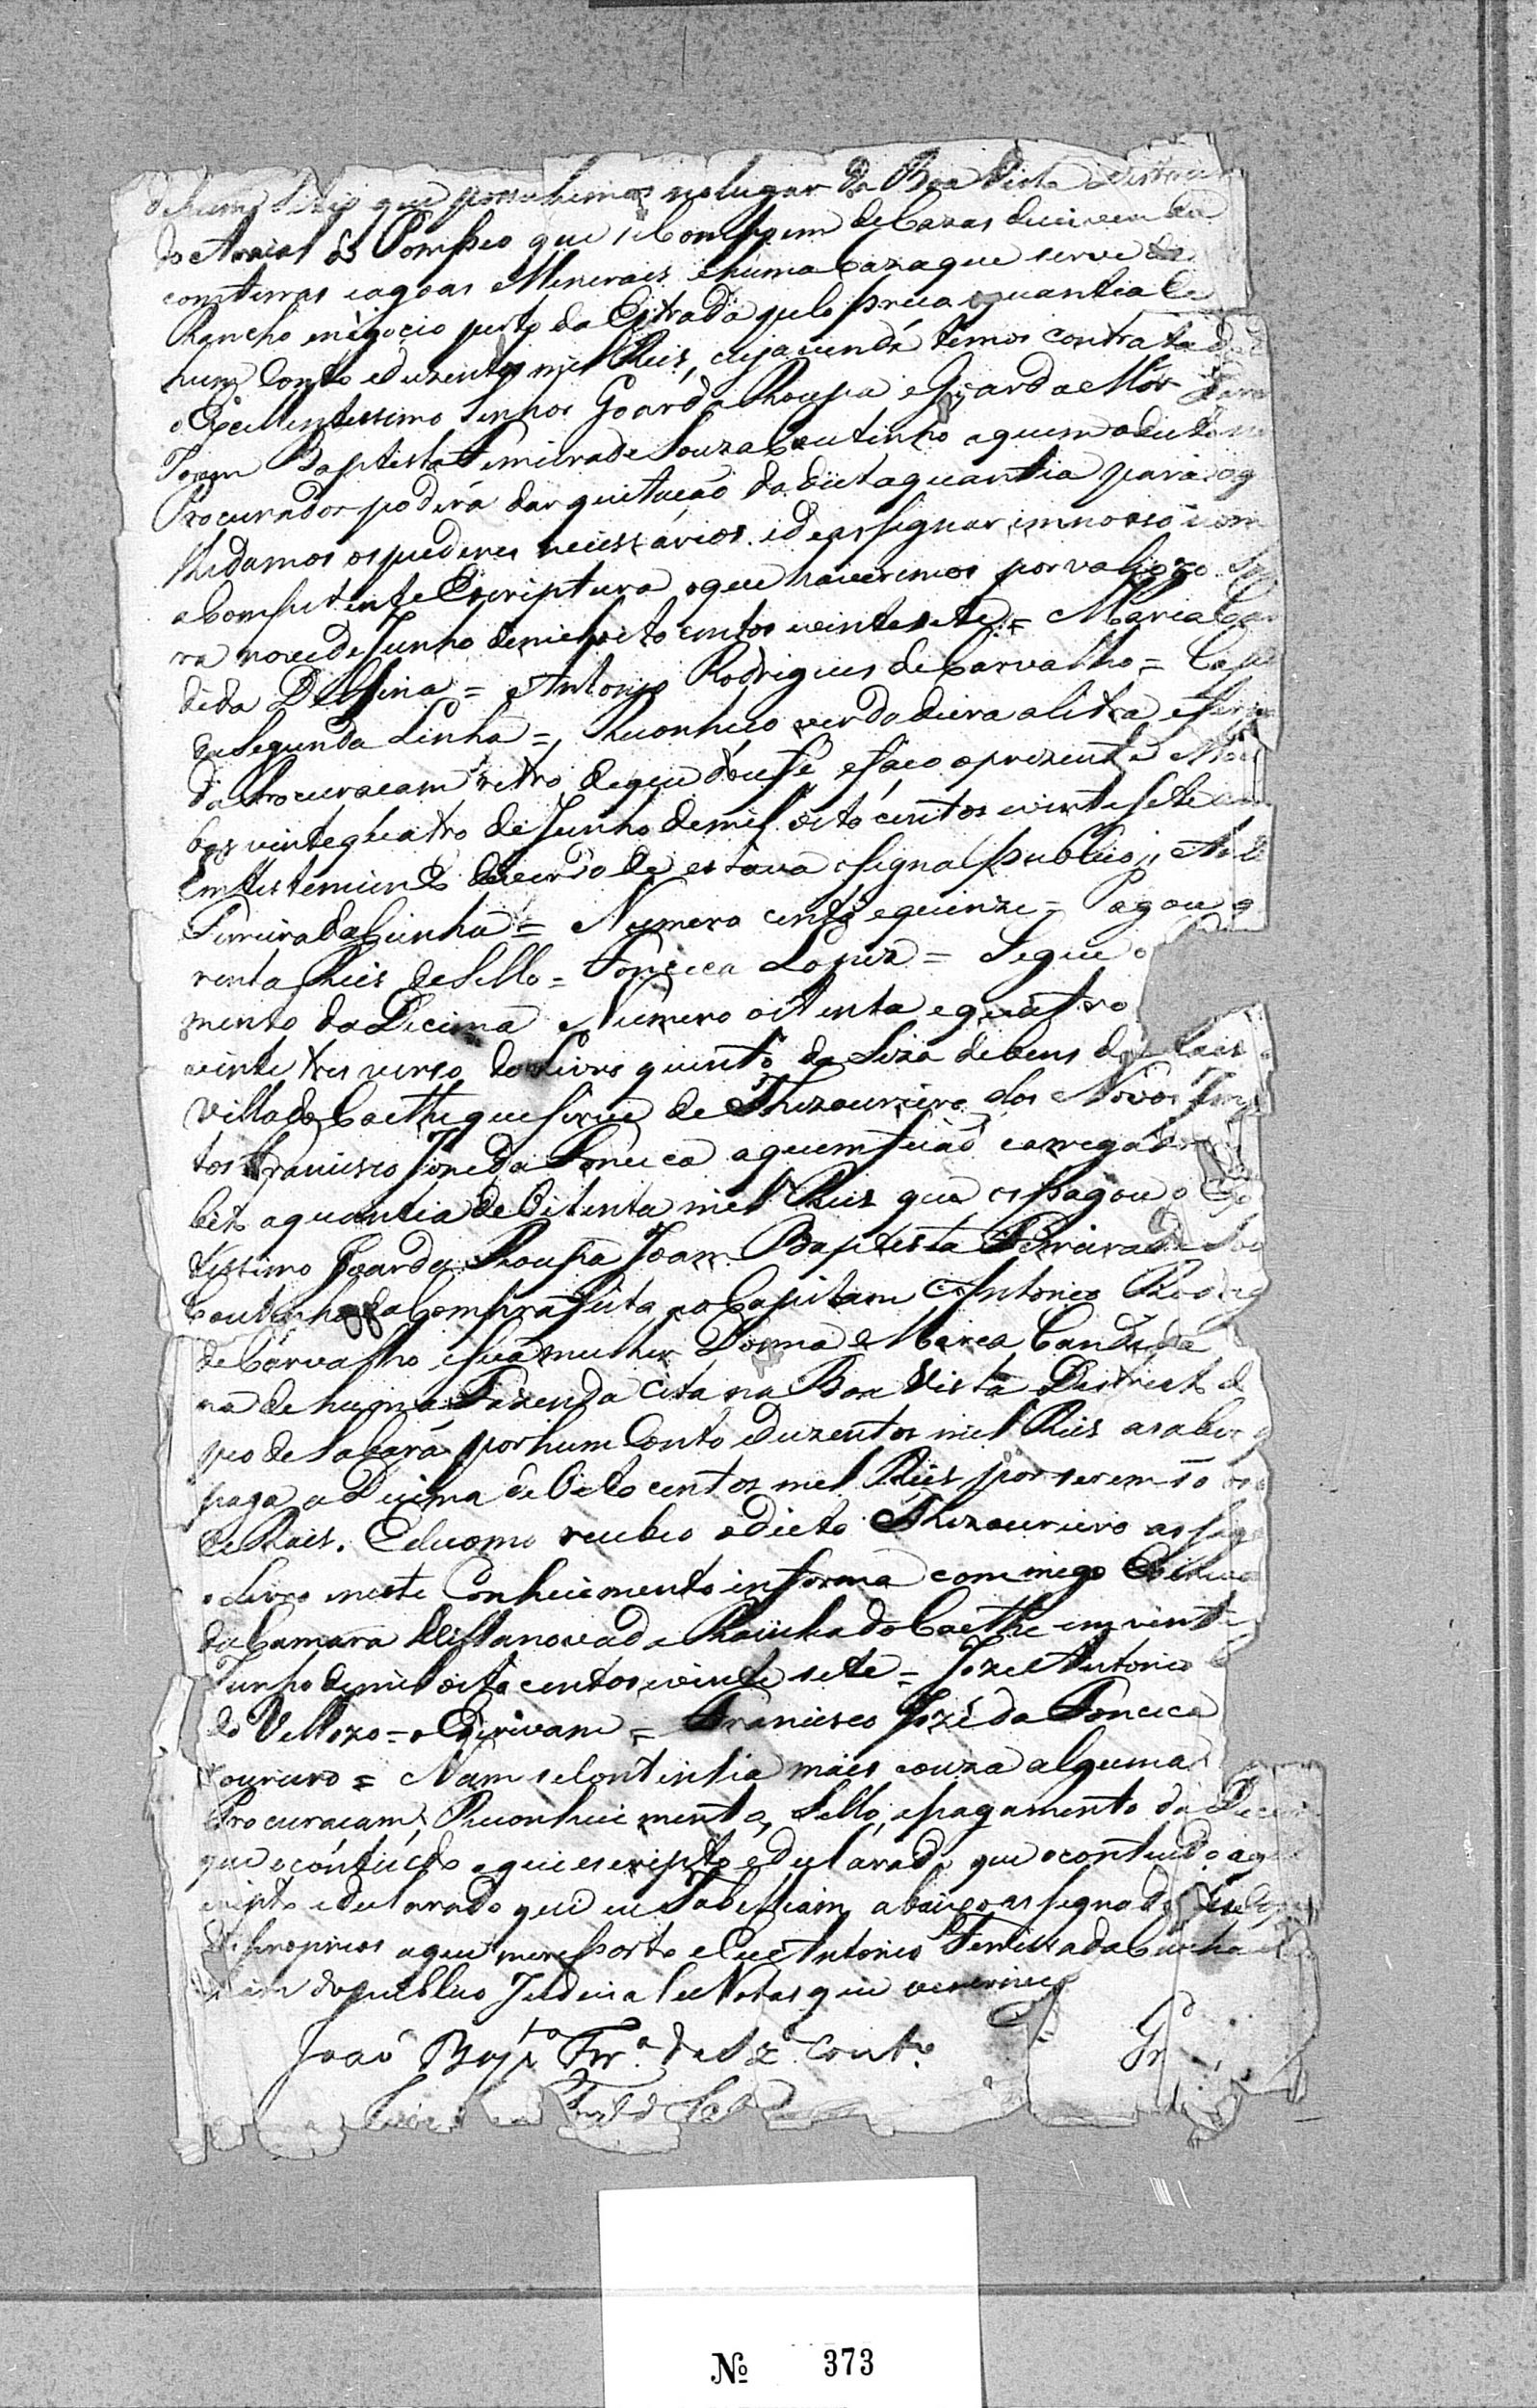 de hum Sitio que possuhimos no lugar da Boa Vista
do Araial do Pompeo que se Compoem de Cazas de vivenda
com terras e agoas Minerais e huma Caza que serve de
Rancho e negocio perto da Estrada pelo preço e quantia de
hum Conto e duzentos mil Reis, cuja venda temos contratado
o Excellentissimo Senhor Goarda Roupa e Goarda Mor
Joam Baptista Ferreira de Souza Coutinho a quem o dicto
Procurador poderá dar quitaçaõ da dicta quantia para o q
lhe damos os poderes necessarios e de assignar em nosso nom
a Competente Escriptura o que haveremos por valiozo
ra nove de Junho de mil oito centos vinte sete = Maria Can
dida Delfina = Antonio Rodrigues de Carvalho = Capi
da Segunda Linha = Reconheço verdadeira a letra e firma
da Procuracam retro de que dou fé, e faço o prezente
bos vinte quatro de Junho de mil oito centos vinte sete
Em testemunho de verdade estava o signal publico
Ferreira da Cunha = Numero cento e quinze = Pagou q
renta Reis de Sello = Fonceca Lopes = Segue o
mento da Decima Numero oitenta e quatro
vinte tres verso do Livro quinto da Siza de bens de
Villa do Caethe que serve de Thezoureiro dos Novos Imp
tos Francisco Joze da Fonceca a quem ficaõ carregados
bito a quantia de Oitenta mil Reis que os pagou o
tissimo Goarda Roupa Joam Baptista Ferreira de Sou
Coutinho da Compra feita ao Capitam Antonio Rodrig
de Carvalho e sua mulher Donna Maria Candida
na de huma Fazenda cita na Boa Vista Districto d
peo de Sabará por hum Conto e duzentos mil Reis a saber
paga a Decima de Oito centos mil Reis por serem só os
de Rais. E de como recebeo o dicto Thezoureiro assig
o Livro neste Conhecimento in forma commigo Escrivaõ
da Camara Villa nova da Rainha do Caethe em vinte
Junho de mil oito centos vinte sete = Joze Antonio
do Vellozo = o Escrivam = Francisco Jozé da Fonceca
zoureiro = Nam se Continha mais couza alguma
Procuracam, Reconhecimento, Sello, e pagamento da Deci
que o contiudo aqui escripto e declarado que o contiudo aq
cripto e declarado que eu Tabelliam abaixo assignado
dos proprios a que me reporto e Eu Antonio Ferreira da Cunha
do publico Judicial e Notas que o escrevi
Joaõ Bap.ta Frr.ª de Sz.ª Cout.º
Nº 373